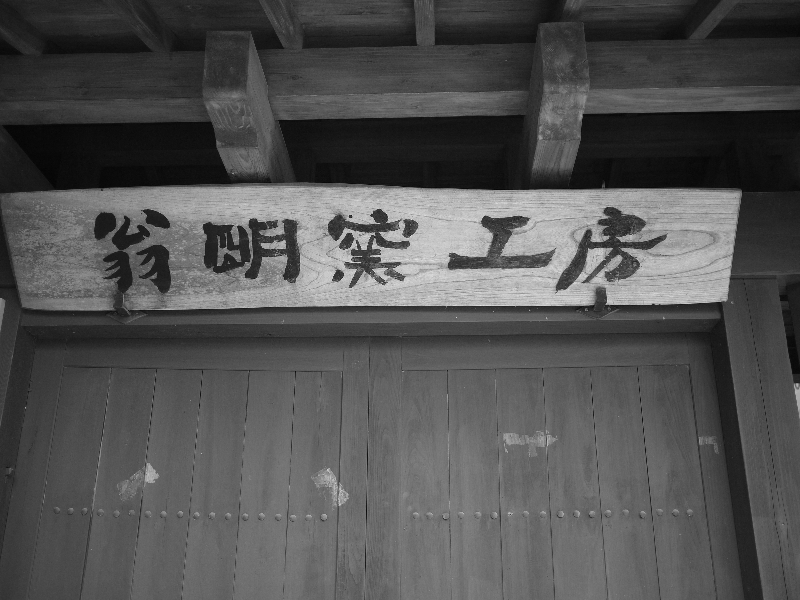 翁明窯工房